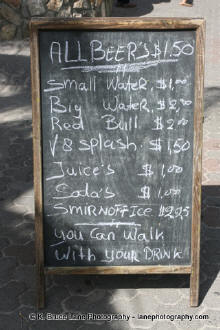 ALL BEER'S $1.50
Small Water, $1.00
Big Water, $2.00
Red Bull $2.00
V8 Splash. $1.50
Juice's $1.00
Soda's $1.00
SMIRNOFF ICE $2.25
You Can Walk
With Your DRINK
© K. Bruce Lane Photography - lanephotography.com